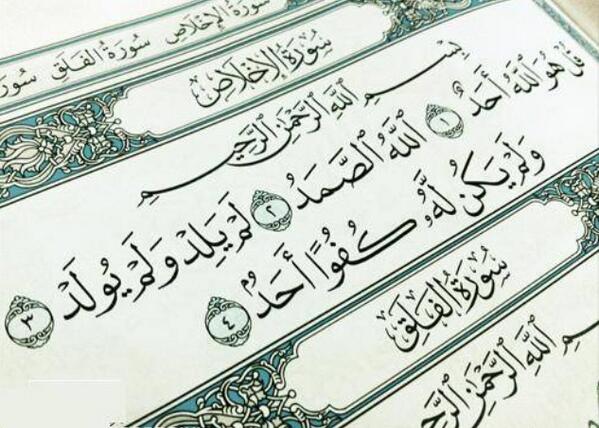 سورة الإخلاص سورة الفلق
سُورَةُ الإِخْلَاصِ
بِسْمِ اللَّهِ الرَّحْمَٰنِ الرَّحِيمِ
قُلْ هُوَ اللَّهُ أَحَدٌ ١ اللَّهُ الصَّمَدُ ٢ لَمْ يَلِدْ وَلَمْ يُولَدْ ٣
وَلَمْ يَكُن لَّهُ كُفُوًا أَحَدٌ ٤
سُورَةُ الفَلَقِ
اللَّهِ الرَّحْمَٰنِ